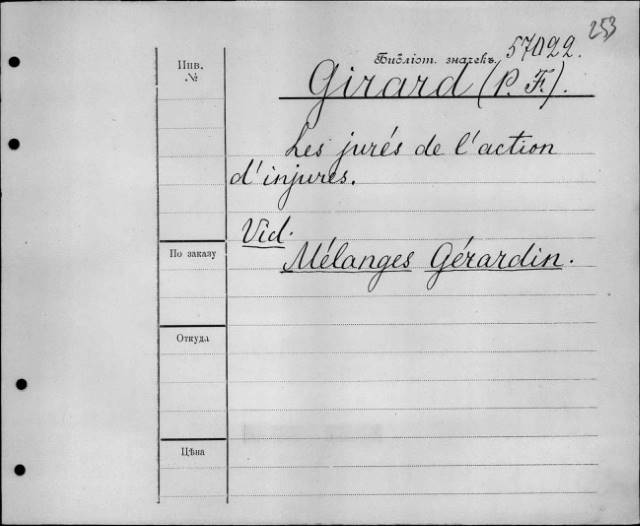 253
Инв. №
Библіот. значекъ 57022.
Girard (P. F.).
Les jurés de l'action
d'injures.
Vid.
По заказу
Mélanges Gérardin.
Откуда
Цѣна